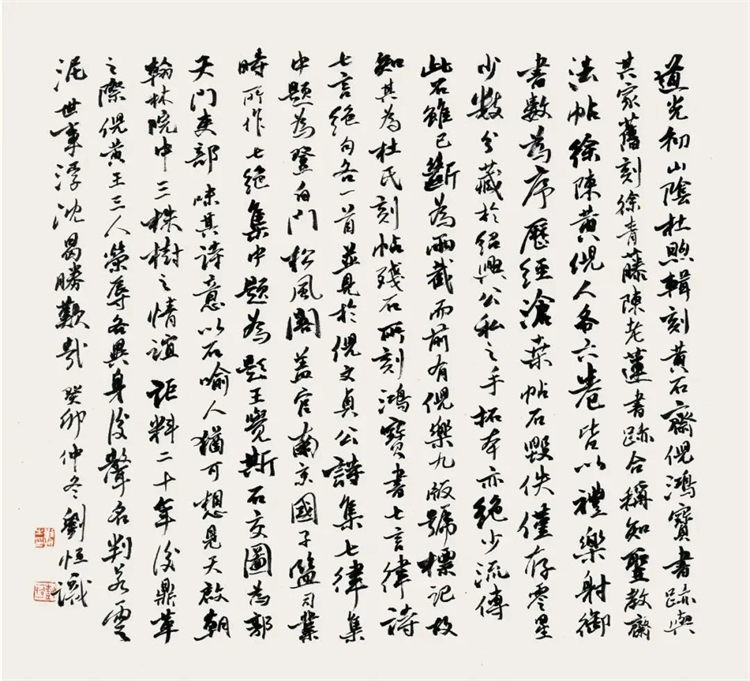 道光初山陰杜煦輯刻黃石齋倪鴻寶書跡與
其家舊刻徐青藤陳老蓮書跡合稱知聖教齋
法帖徐陳黃倪人各六卷皆以禮樂射御
書數為序歷經滄桑帖石毀佚僅存零星
少數分藏於紹興公私之手拓本亦絕少流傳
此石雖已斷為兩截而前有倪樂九版號標記故
知其為杜氏刻帖殘石所刻鴻寶書七言律詩
七言絕句各一首並見於倪文貞公詩集七律集
中題為登白門松風閣蓋官南京國子監司業
時所作七絕集中題為題王覺斯石交圖為郭
天門吏部味其詩意以石喻人猶可想見天啟朝
翰林院中三株樹之情誼詎料二十年後鼎革
之際倪黃王三人榮辱各異身後聲名判若雲
泥世事浮沈曷勝歎哉癸卯仲冬劉恒識